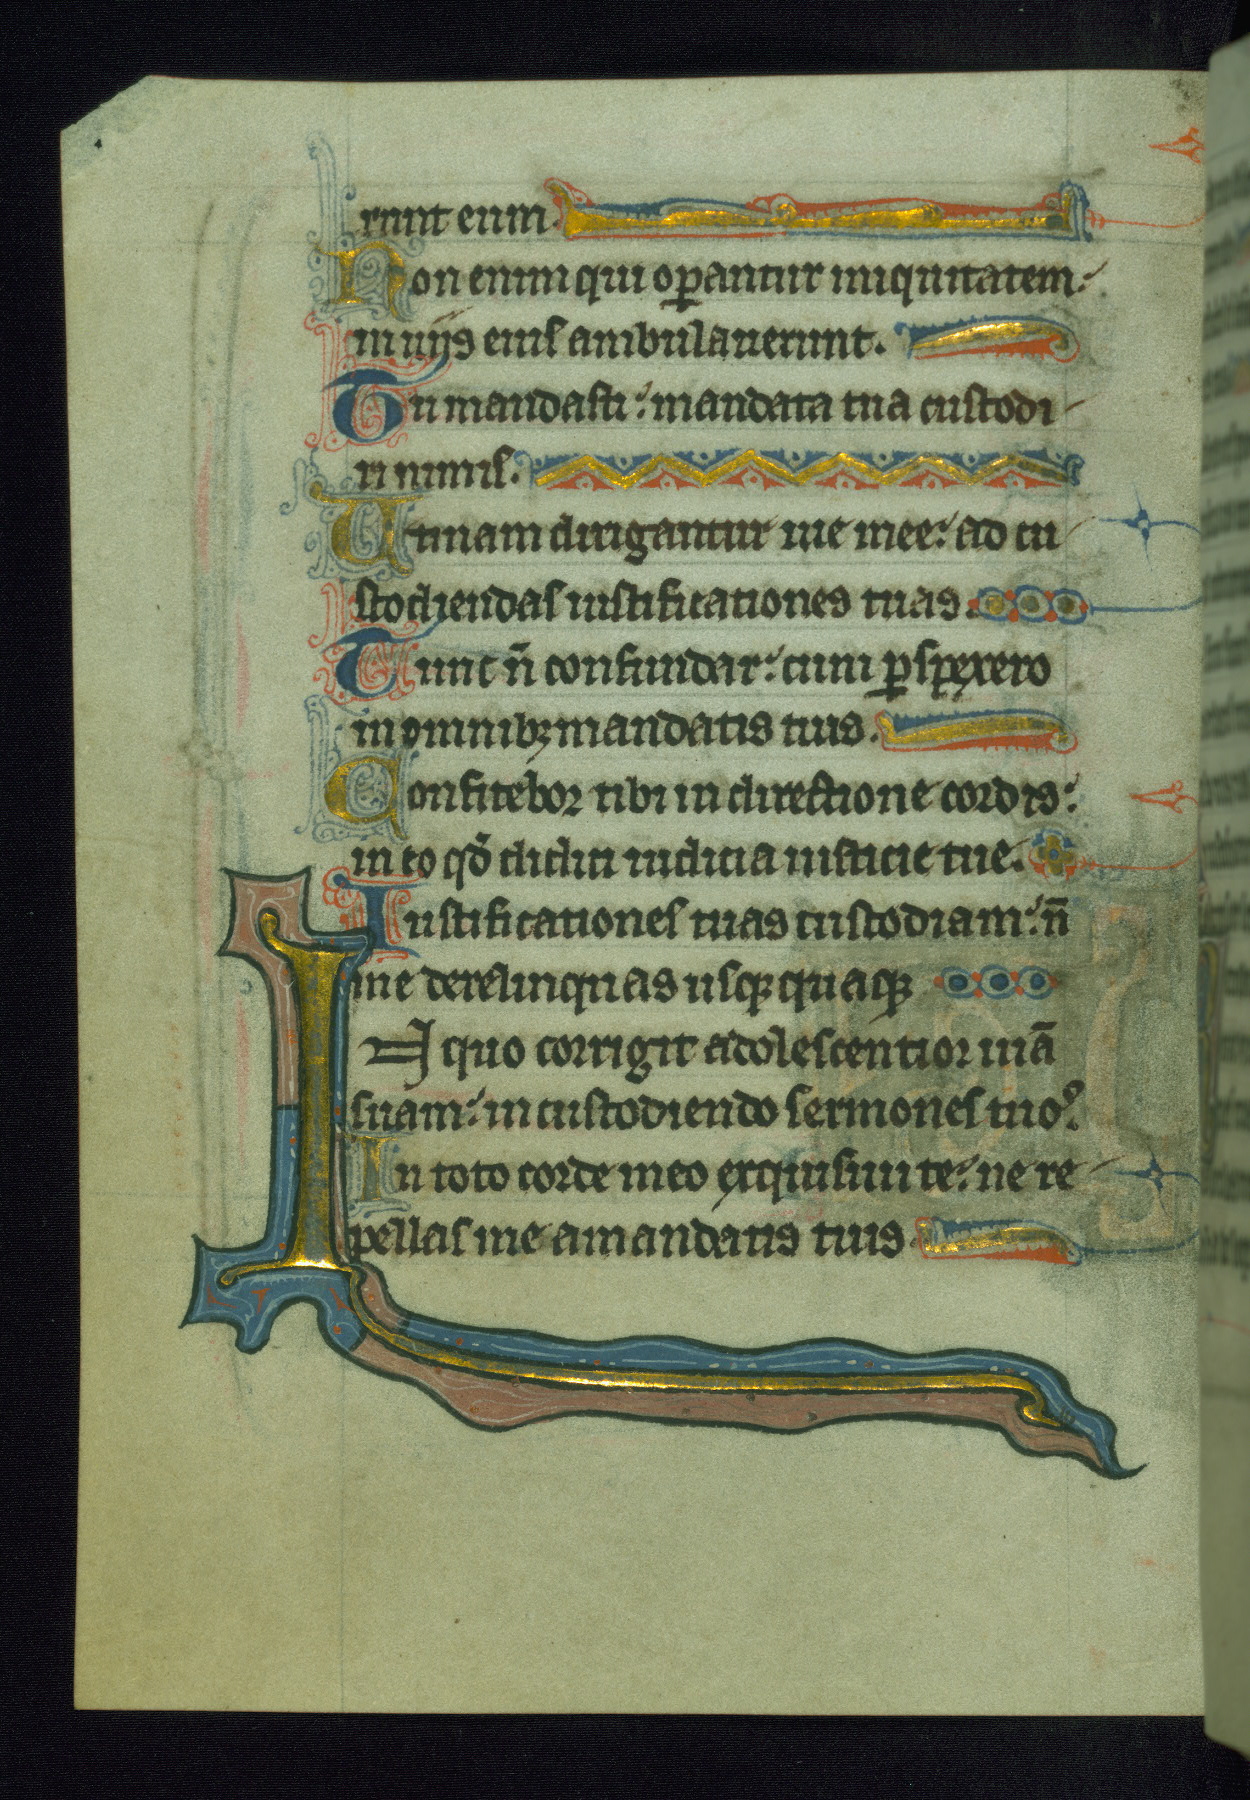 runt eum.
Non enim qui oꝑantur iniquitatem:
in uijs eius ambulauerunt.
Tu mandasti: mandata tua custodi
ri nimis.
Utinam dirigantur uie mee: ad cu
stodiendas iustificationes tuas.
Tunc n̄ confundar: cum ꝑspexero
in omnibꝫ mandatis tuis.
Confitebor tibi in directione cordis:
in eo qđ didici iudicia iusticie tue.
Iustificationes tuas custodiam: n̄
me derelinquas usqꝫ quaqꝫ
In quo corrigit adolescentior uiā
suam: in custodiendo sermones tuoꝰ.
In toto corde meo exquisiui te: ne re
pellas me a mandatis tuis